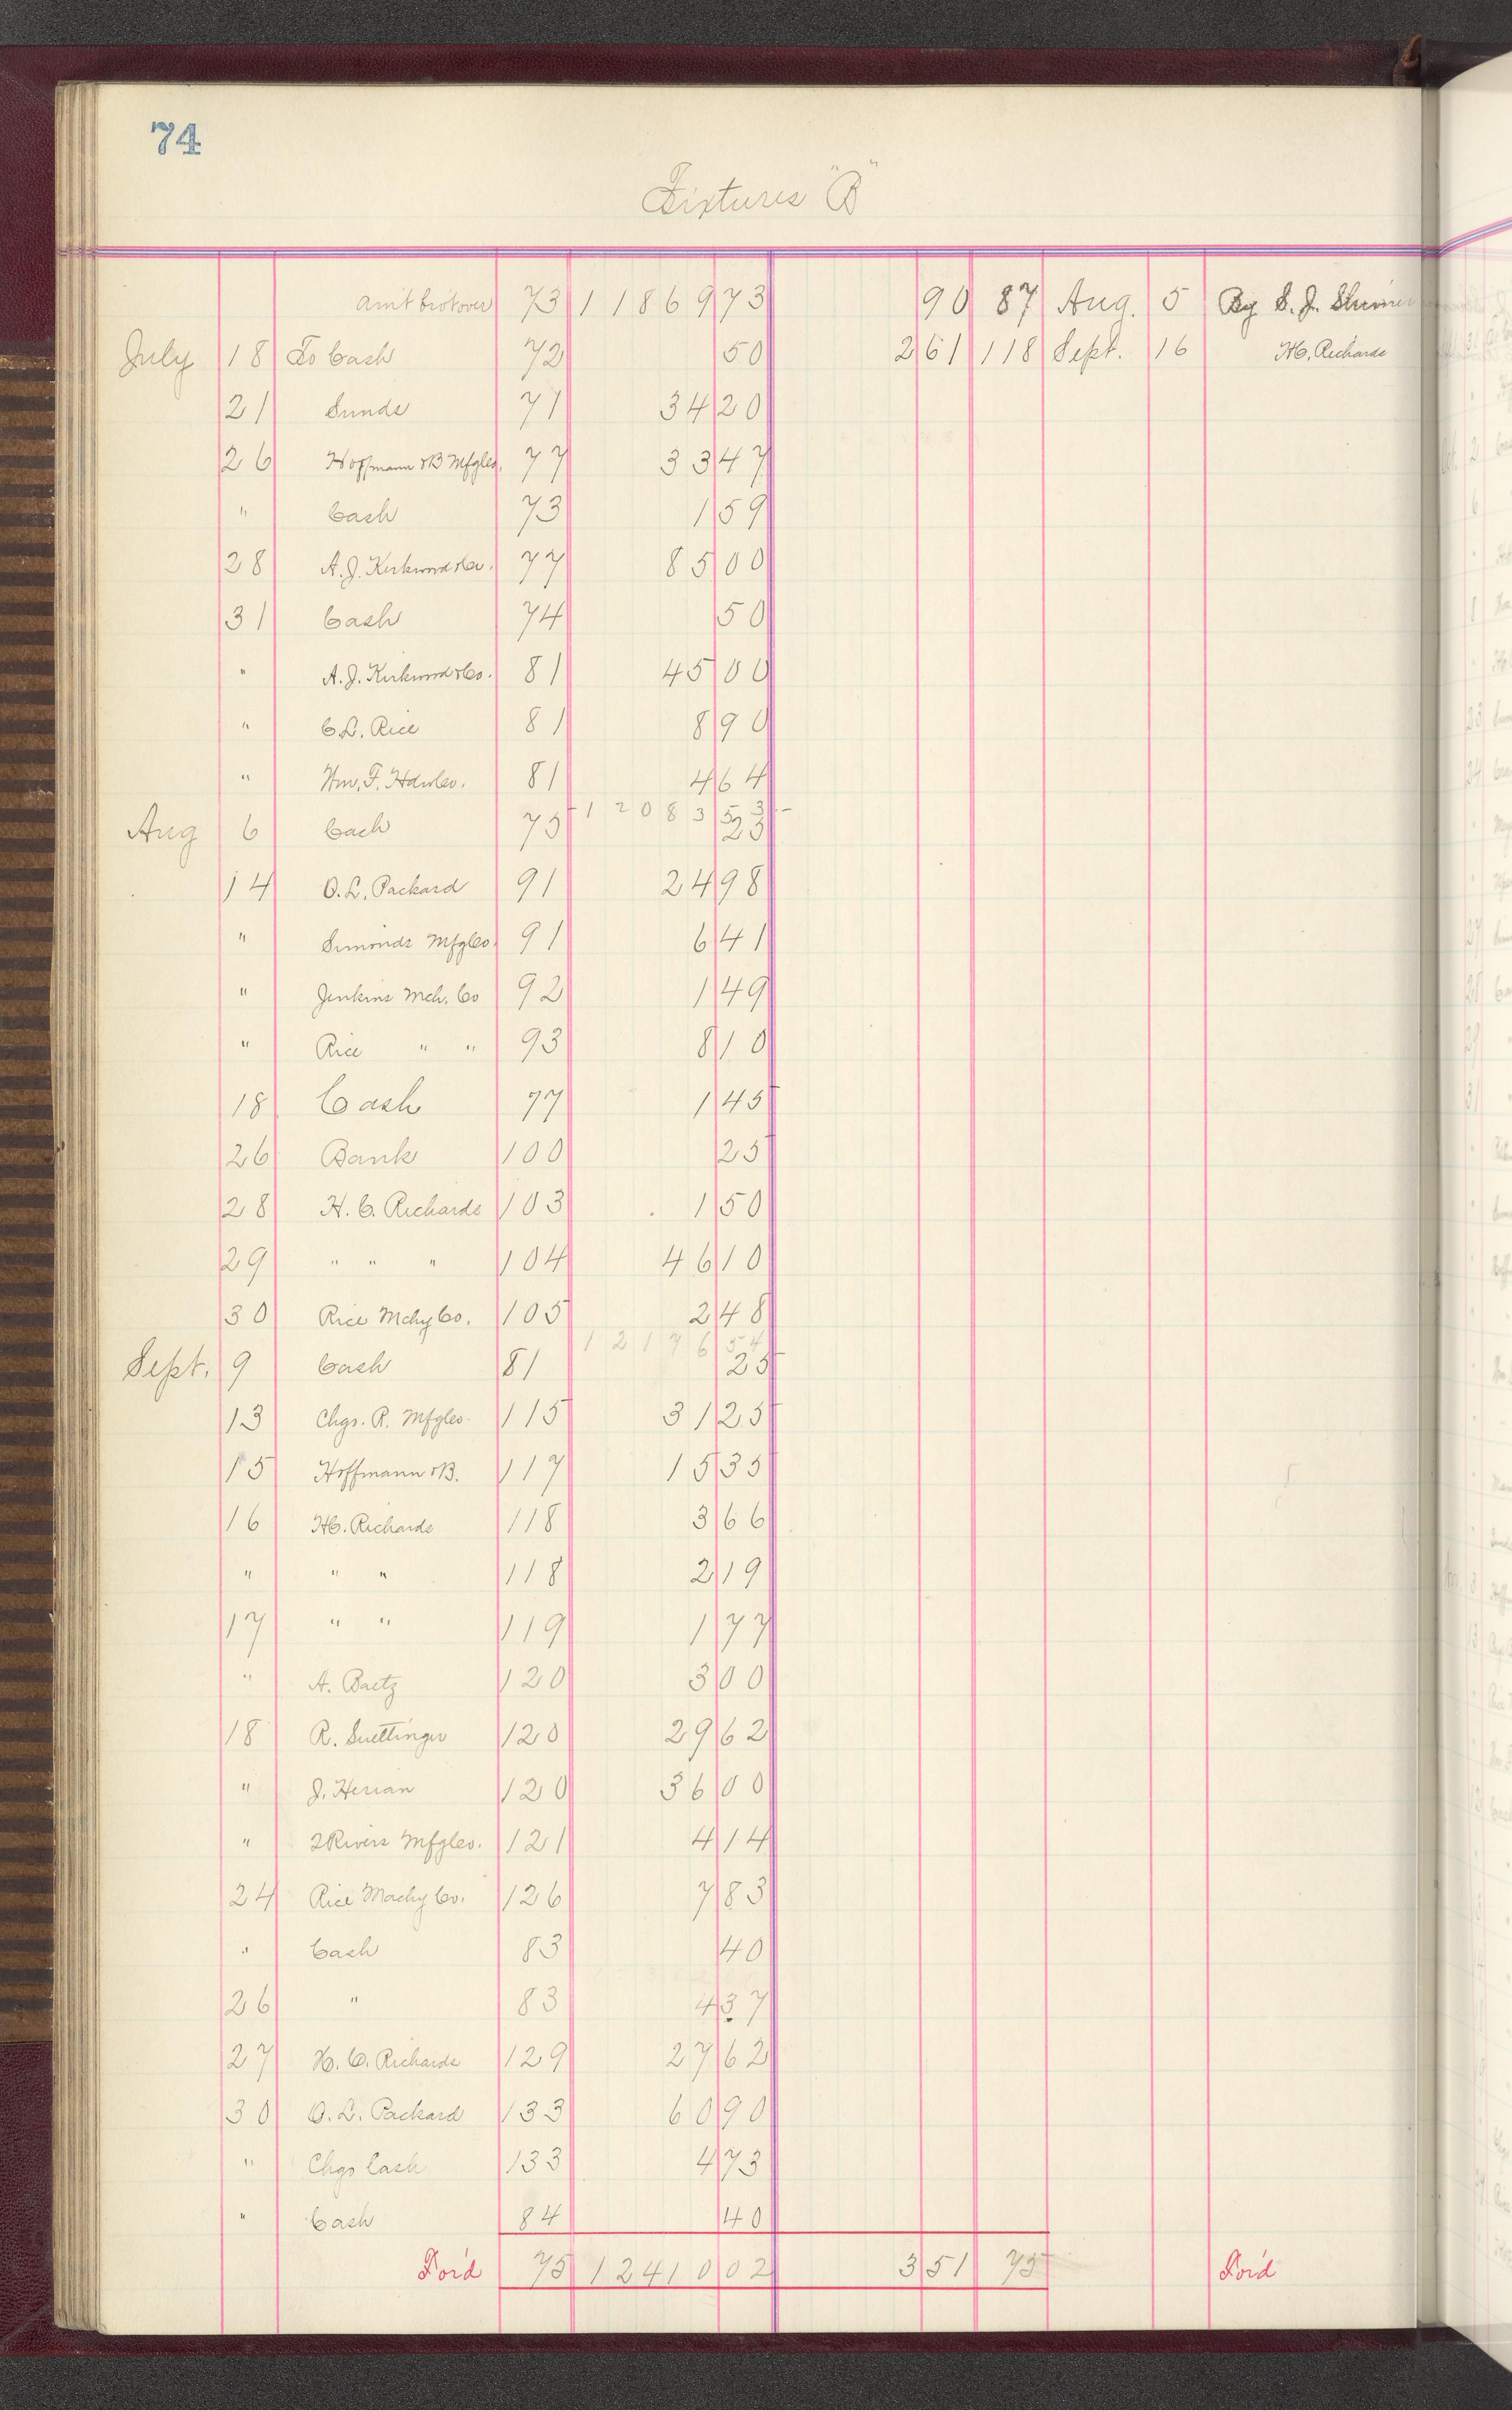 74
Fixtures "B"
am't bro't over 73 11869 73 90 87 Aug. 5 By S. J.
July 18 To Cash 72 50 2 61 118 Sept. 16 H.C. Richards
21 Sunds 71 34 20
26 Hoffmann & B Mfg Co. 77 33 47
" Cash 73 1 59
28 A. J. Kirkwood & Co. 77 85 00
31 Cash 74 50
" A. J. Kirkwood & Co. 81 45 00
" C.L. Rice 81 8 90
" Wm. F. 81 4 64
12083 53
Aug 6 Cash 75 25
14 O. L. Packard 91 24 98
" Simonds Mfg Co. 91 6 41
" Jenkins Mch. Co 92 1 49
" Rice " " 93 8 10
18 Cash 77 1 45
26 Bank 100 25
28 H. C. Richards 103 1 50
29 " " " 104 46 10
30 Rice Mchy Co. 105 2 48
12176 54
Sept. 9 Cash 81 25
13 Chgs. R. Mfg Co. 115 31 25
15 Hoffmann & B. 117 15 35
16 H.C. Richards 118 3 66
" " " 118 2 19
17 " " 119 1 77
" A. Baetz 120 3 00
18 R. Suettinger 120 29 62
" J. Herian 120 36 00
" 2 Rivers Mfg Co. 121 4 14
24 Rice Machy Co. 126 7 83
" Cash 83 40
26 " 83 4 37
27 H. C. Richards 129 27 62
30 O. L. Packard 133 60 90
" Chgs Cash 133 4 73
" Cash 84 40
For'd 75 12410 02 3 51 75 For'd